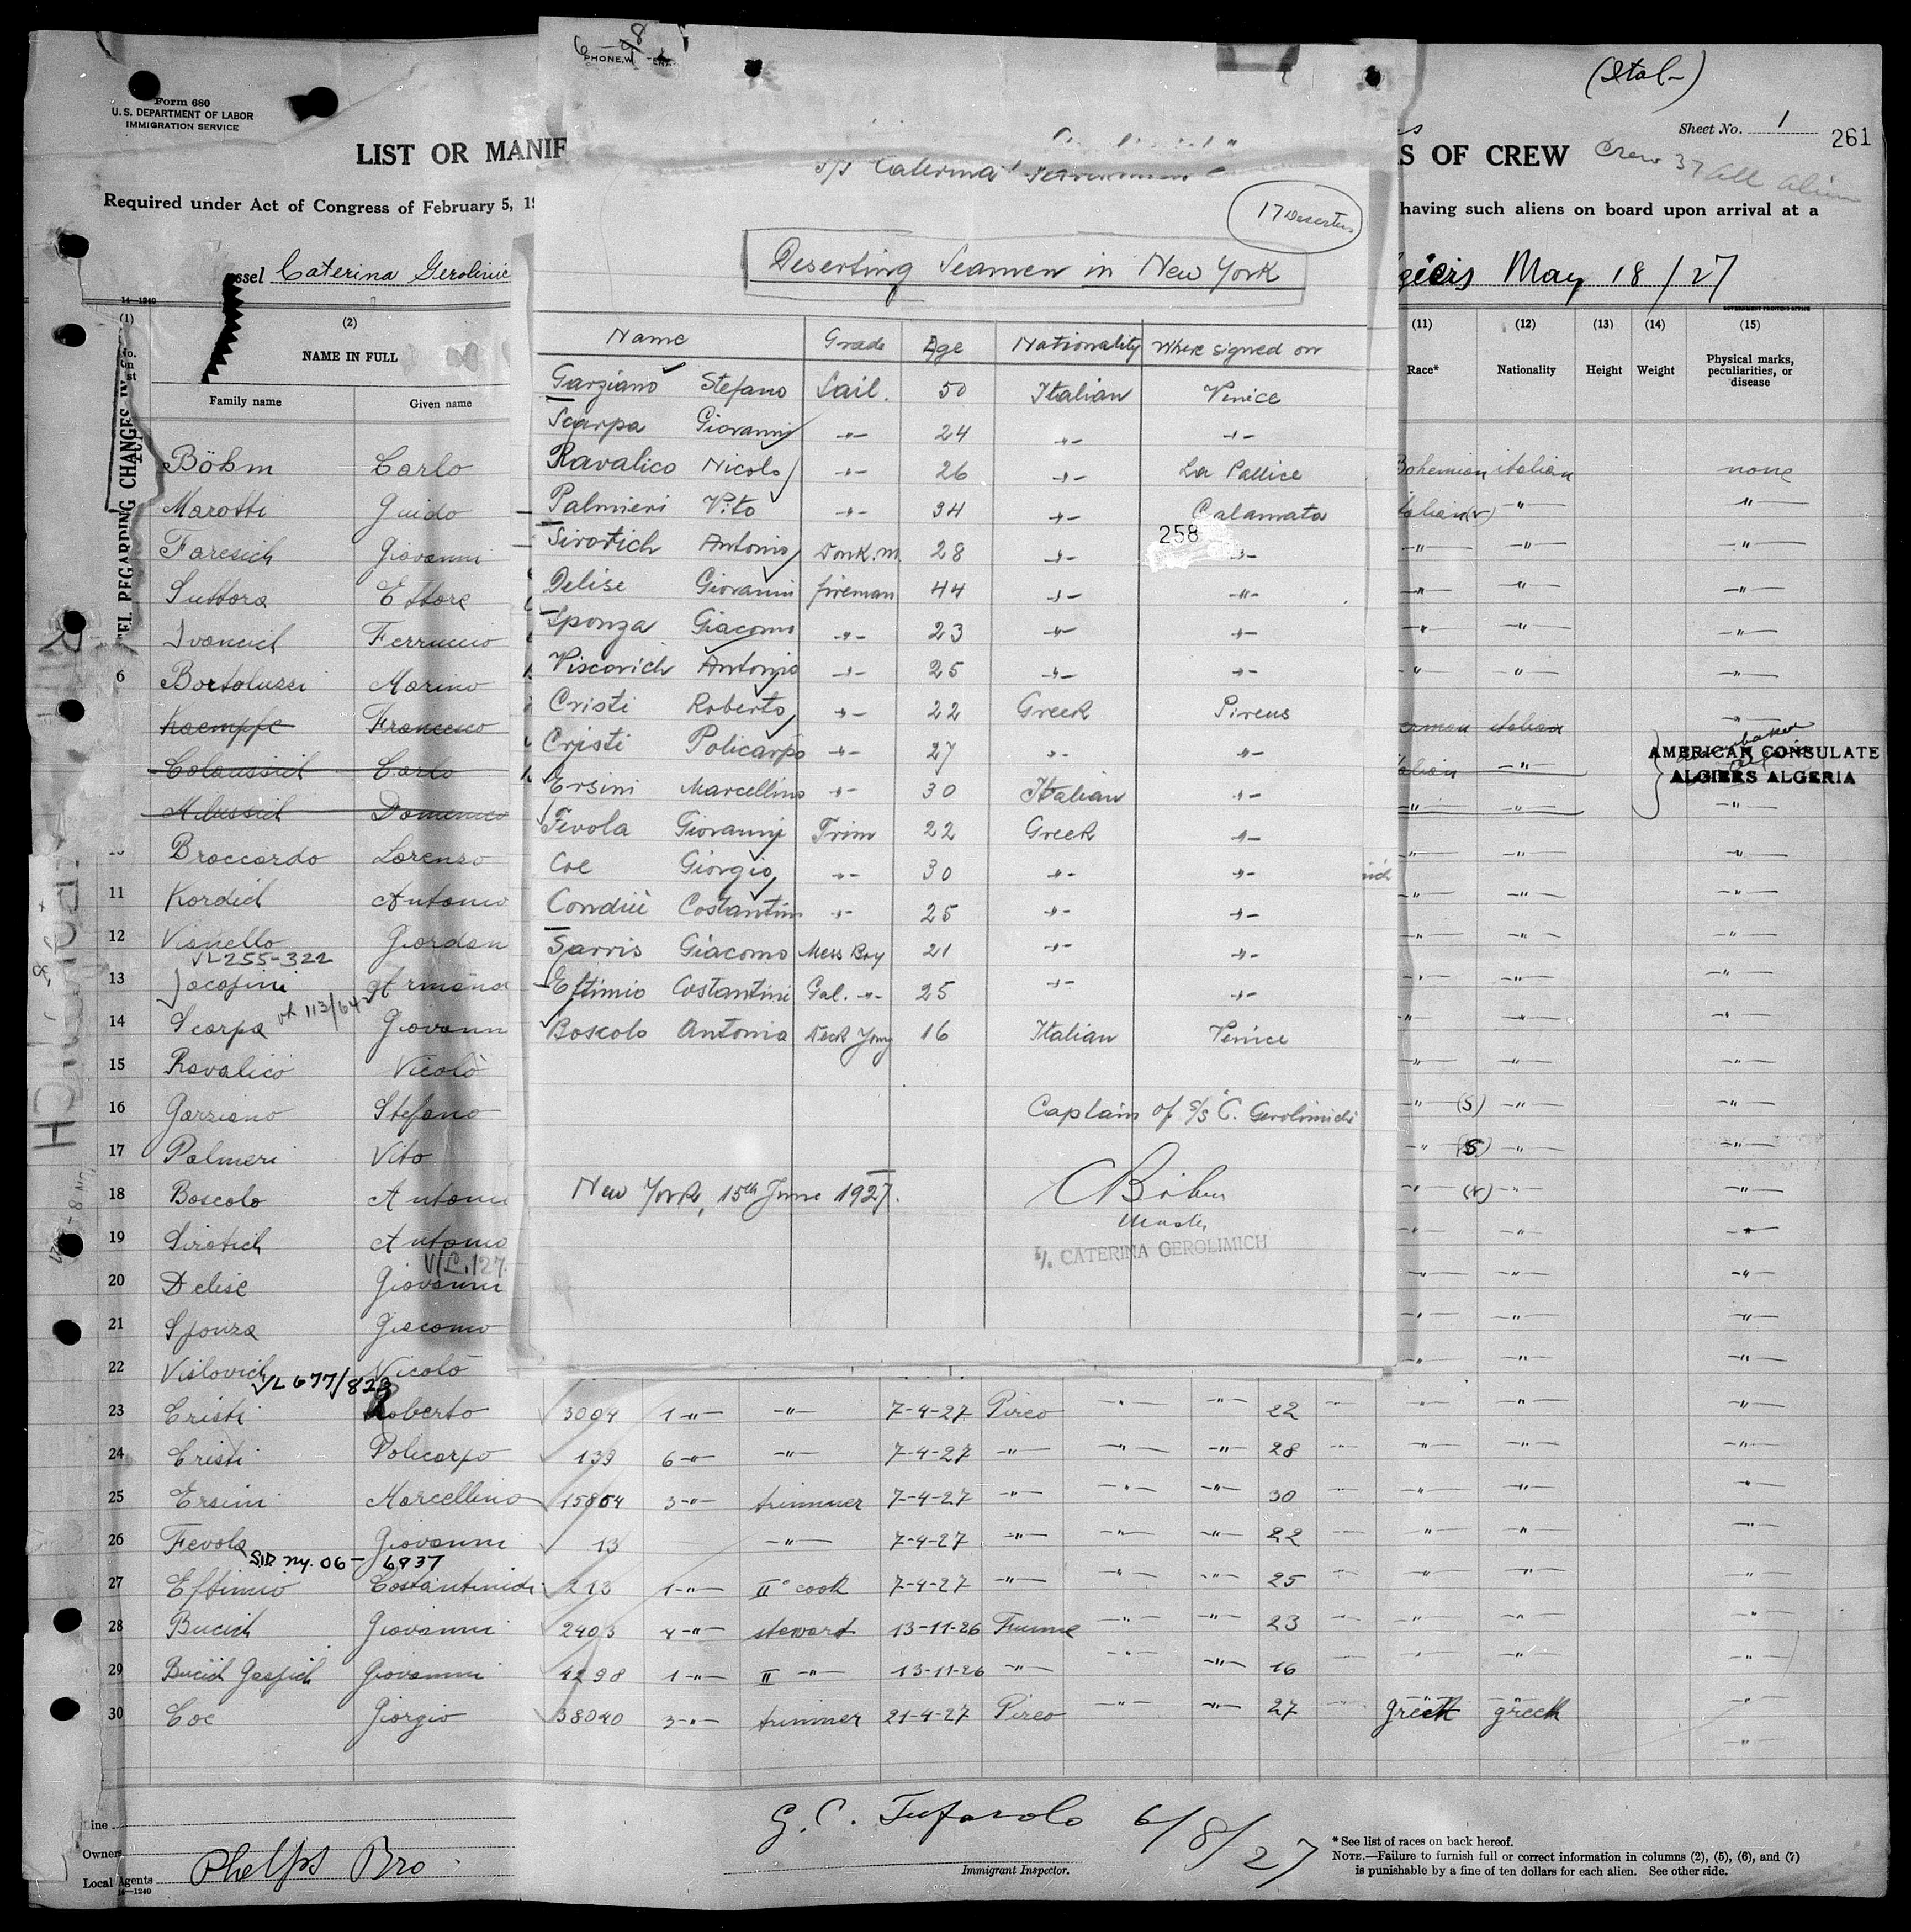 Form 680
U.S. DEPARTMENT OF LABOR
IMMIGRATION SERVICE
LIST OR MANIF
Required under Act of Congress of February 5, 19
ssel Caterina Gerolimic
14—1240
(1) (2)
NAME IN FULL
Family name Given name
Böhm Carlo
Marotti Guido
Faresich Giovanni
Suttora Ettore
Ivancich Ferruccio
6 Bortoluzzi Marino
Kaempfe Francesco
Colaussich Carlo
Milussich Domenico
Braccardo Lorenzo
11 Kordich Antonio
12 Vianello Giordan
VL 255-322
13 Jacofini Armand
14 Scarpa vL 113/64 Giovann
15 Ravalico Nicolò
16 Garziano Stefano
17 Palmeri Vito
18 Boscolo Antoni
19 Sirotich Antonio
V/L.127
20 Delise Giovanni
21 Sponza Giacomo
22 Vislovich Nicolò
VL 677/823
23 Cristi Roberto 3094 1 -"- -"- 7-4-27 Pireo -"- -"- 22
24 Cristi Policarpo 139 6 -"- -"- 7-4-27 -"- -"- -"- 28
25 Ersini Marcellino 15864 3 -"- trimmer 7-4-27 -"- -"- -"- 30
26 Fevola Giovanni 13 -"- 7-4-27 -"- -"- -"- 22
SID ny. 06- 6837
27 Eftimio Costantinidi 213 1 -"- II° cook 7-4-27 -"- -"- -"- 25
28 Bucich Giovanni 2403 4 -"- steward 13-11-26 Fiume -"- -"- 23
29 Bucich Gaspich Giovanni 4298 1 -"- II -"- 13-11-26 -"- -"- -"- 16
30 Coe Giorgio 38040 3 -"- trimmer 21-4-27 Pireo -"- -"- 27 greek greek
Line
Owners
Local Agents Phelps Bro
14—1240
G. C. Tufarolo 6/8/27
Immigrant Inspector.
* See list of races on back hereof.
NOTE.—Failure to furnish full or correct information in columns (2), (5), (6), and (7)
is punishable by a fine of ten dollars for each alien. See other side.
PHONE,W
S/S "Caterina
17 Deserters
Deserting Seamen in New York
Name Grade Age Nationality Where signed on
Garziano Stefano Sail. 50 Italian Venice
Scarpa Giovanni -"- 24 -"- -"-
Ravalico Nicolo -"- 26 -"- La Pallice
Palmieri Vito -"- 34 -"- Calamata
258
Sirotich Antonio Donk.m. 28 -"- -"-
Delise Giovanni fireman 44 -"- -"-
Sponza Giacomo -"- 23 -"- -"-
Viscovich Antonio -"- 25 -"- -"-
Cristi Roberto -"- 22 Greek Pireus
Cristi Policarpo -"- 27 -"- -"-
Ersini Marcellino -"- 30 Italian -"-
Fevola Giovanni Trim 22 Greek -"-
Coe Giorgio -"- 30 -"- -"-
Condili Costantin -"- 25 -"- -"-
Sarris Giacomo Mess Boy 21 -"- -"-
Eftimio Costantini Gal. -"- 25 -"- -"-
Boscolo Antonio Deck Yong 16 Italian Venice
Captain of S/S C. Gerolimich
New York, 15th June 1927.
CBöhm
Master
S/S. CATERINA GEROLIMICH
(Ital-)
Sheet No. 1
261
S OF CREW
Crew 37 all alien
having such aliens on board upon arrival at a
giers May 18/27
(11) (12) (13) (14) (15)
Race* Nationality Height Weight Physical marks, peculiarities, or disease
Bohemian italian none
talian(N) -"- -"-
erman italian
AMERICAN CONSULATE
ALGIERS ALGERIA
(S)
(S)
(N)